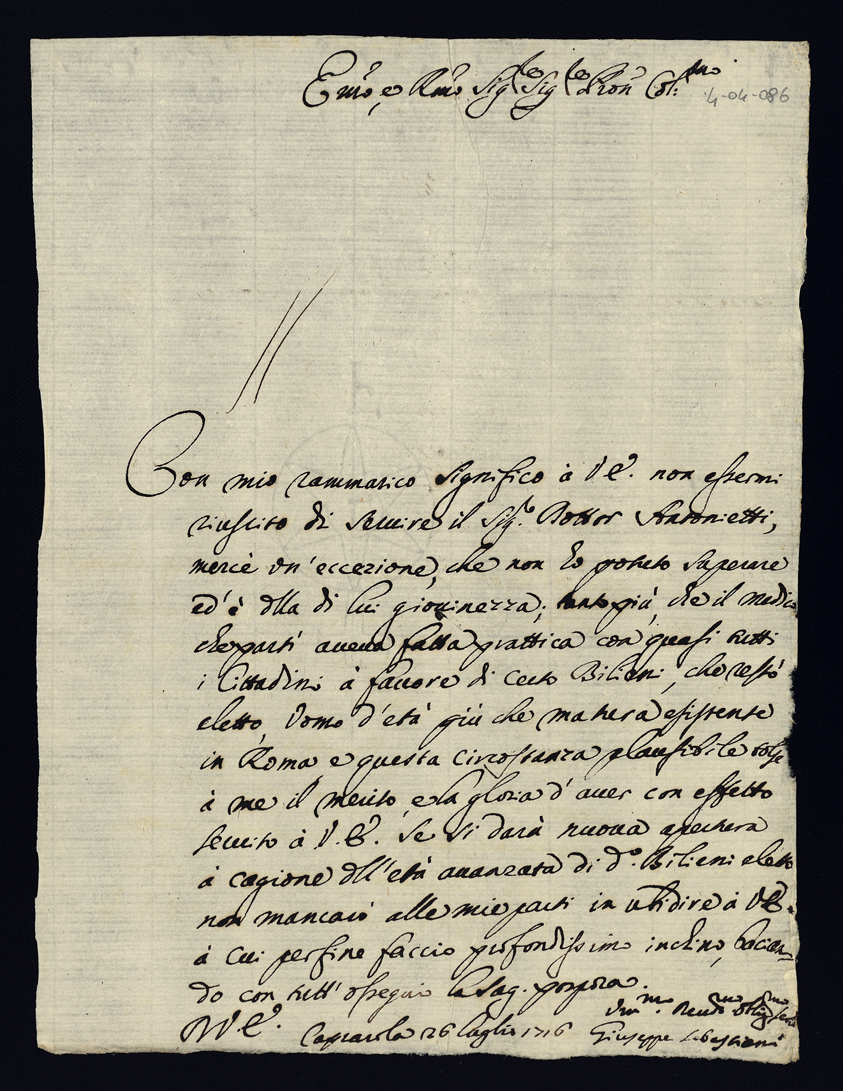 Em.o e R.mo Sig.re Sig.re Pron Col.mo
4-04-086
Con mio rammarico significo à V.E. non essermi
riuscito di servire il Sig.r Dottor Antonietti,
mercè un'eccezione, che non ho potuto superare
ed'è dlla di lui giovinezza; tanto più, che il medico
che partì aveva fatta prattica con quasi tutti
i Cittadini à favore di certo Bilieni, che restò
eletto, Uomo d'età più che matura esistente
in Roma e questa circostanza plausibile tolse
à me il merito, e la gloria d'aver con effetto
servito à V.E. Se si darà nuova apertura
à cagione dll'età avanzata di d.o Bilieni eletto
non mancarò alle mie parti in ubidire à V.E.
à cui per fine faccio profondissimo inchino, bacian-
do con tutt'ossequio la Sag. porpora.
D V.E.
Caprarola 26 luglio 1716
Um.mo Dev.mo Oblig.mo ser.
Giuseppe Sebastiani